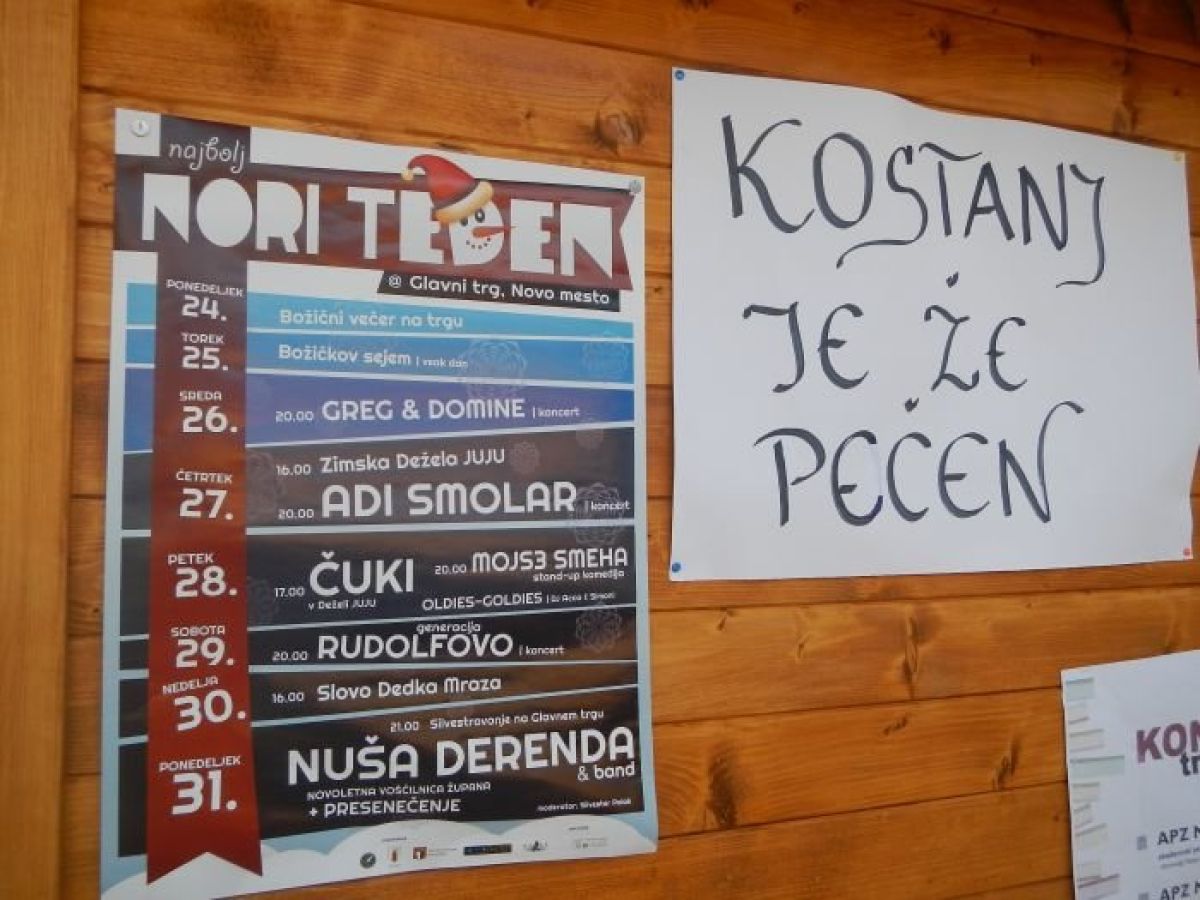 najbolj
NORI TEDEN
@ Glavni trg, Novo mesto
PONEDELJEK
24.
Božični večer na trgu
TOREK
25.
Božičkov sejem | vsak dan
SREDA
26.
20.00 GREG & DOMINE | koncert
ČETRTEK
27.
16.00 Zimska Dežela JUJU
20.00 ADI SMOLAR | koncert
PETEK
28.
17.00 ČUKI
v Deželi JUJU
20.00 MOJS3 SMEHA
stand-up komedija
OLDIES-GOLDIES |
SOBOTA
29.
generacija
20.00 RUDOLFOVO | koncert
NEDELJA
30.
16.00 Slovo Dedka Mraza
PONEDELJEK
31.
21.00 Silvestrovanje na Glavnem trgu
NUŠA DERENDA
& band
NOVOLETNA VOŠČILNICA ŽUPANA
+ PRESENEČENJE
moderator: Silvester
KOSTANJ
JE ŽE
PEČEN
KON
tr
APZ
APZ